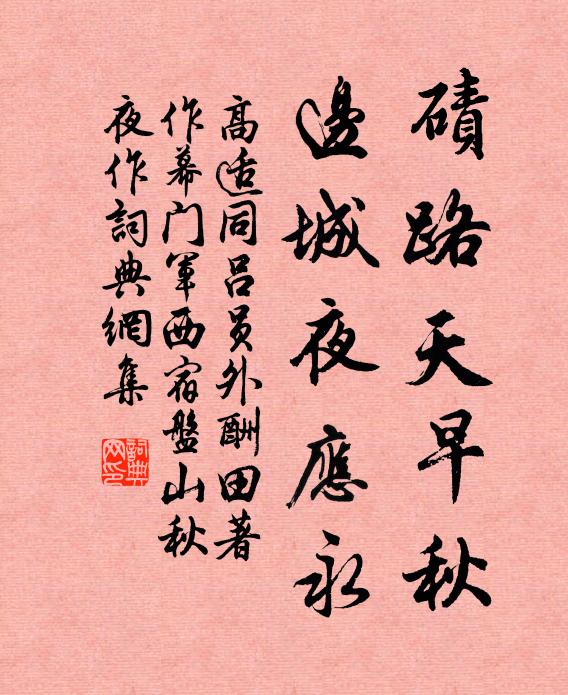 磧路天早秋
邊城夜應永
高适同吕员外酬田著
作幕门軍西宿盤山秋
夜作詞典網集
詞典
网印